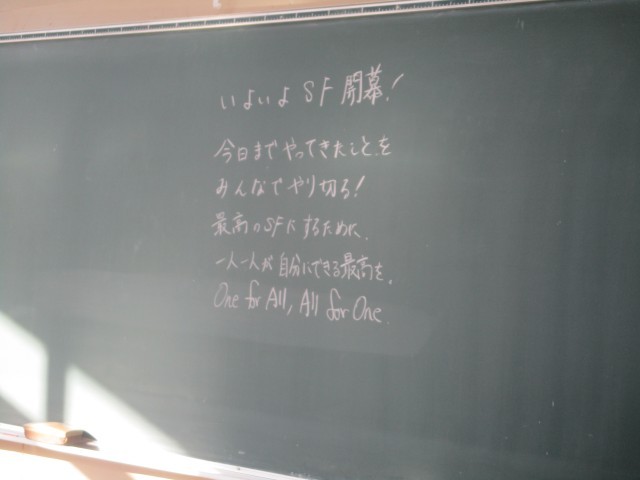 いよいよSF開幕！
今日までやってきたことを
みんなでやり切る！
最高のSFにするために、
一人一人が自分にできる最高を。
One for All, All for One.